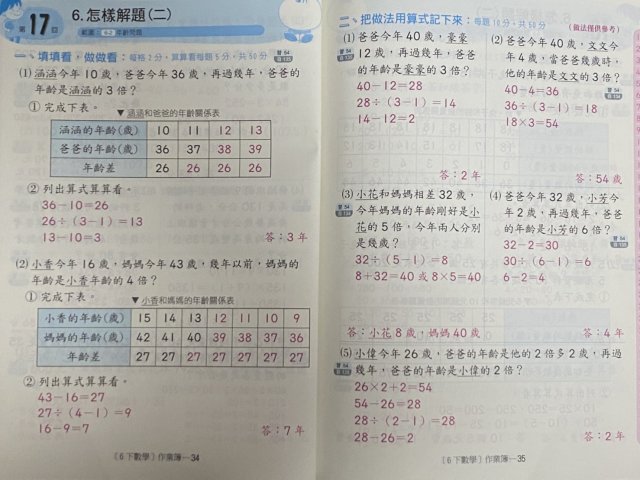 第17回
6.怎樣解題(二)
範圍：6-2 年齡問題
一、填填看，做做看：每格2分，算算看每題5分，共50分
(1)涵涵今年10歲，爸爸今年36歲，再過幾年，爸爸的
年齡是涵涵的3倍？
①完成下表。
▼涵涵和爸爸的年齡關係表
涵涵的年齡(歲) 10 11 12 13
爸爸的年齡(歲) 36 37 38 39
年齡差 26 26 26 26
②列出算式算算看。
36－10＝26
26÷(3－1)＝13
13－10＝3
答：3年
(2)小香今年16歲，媽媽今年43歲，幾年以前，媽媽的
年齡是小香年齡的4倍？
①完成下表。
▼小香和媽媽的年齡關係表
小香的年齡(歲) 15 14 13 12 11 10 9
媽媽的年齡(歲) 42 41 40 39 38 37 36
年齡差 27 27 27 27 27 27 27
②列出算式算算看。
43－16＝27
27÷(4－1)＝9
16－9＝7
答：7年
〔6下數學〕作業簿—34
二、把做法用算式記下來：每題10分，共50分
(做法僅供參考)
(1)爸爸今年40歲，豪豪
12歲，再過幾年，爸爸
的年齡是豪豪的3倍？
40－12＝28
28÷(3－1)＝14
14－12＝2
答：2年
(2)爸爸今年40歲，文文今
年4歲，當爸爸幾歲時，
他的年齡是文文的3倍？
40－4＝36
36÷(3－1)＝18
18×3＝54
答：54歲
(3)小花和媽媽相差32歲，
今年媽媽的年齡剛好是小
花的5倍，今年兩人分別
是幾歲？
32÷(5－1)＝8
8＋32＝40或8×5＝40
答：小花8歲，媽媽40歲
(4)爸爸今年32歲，小芳今
年2歲，再過幾年，爸爸
的年齡是小芳的6倍？
32－2＝30
30÷(6－1)＝6
6－2＝4
答：4年
(5)小偉今年26歲，爸爸的年齡是他的2倍多2歲，再過
幾年，爸爸的年齡是小偉的2倍？
26×2＋2＝54
54－26＝28
28÷(2－1)＝28
28－26＝2
答：2年
〔6下數學〕作業簿—35